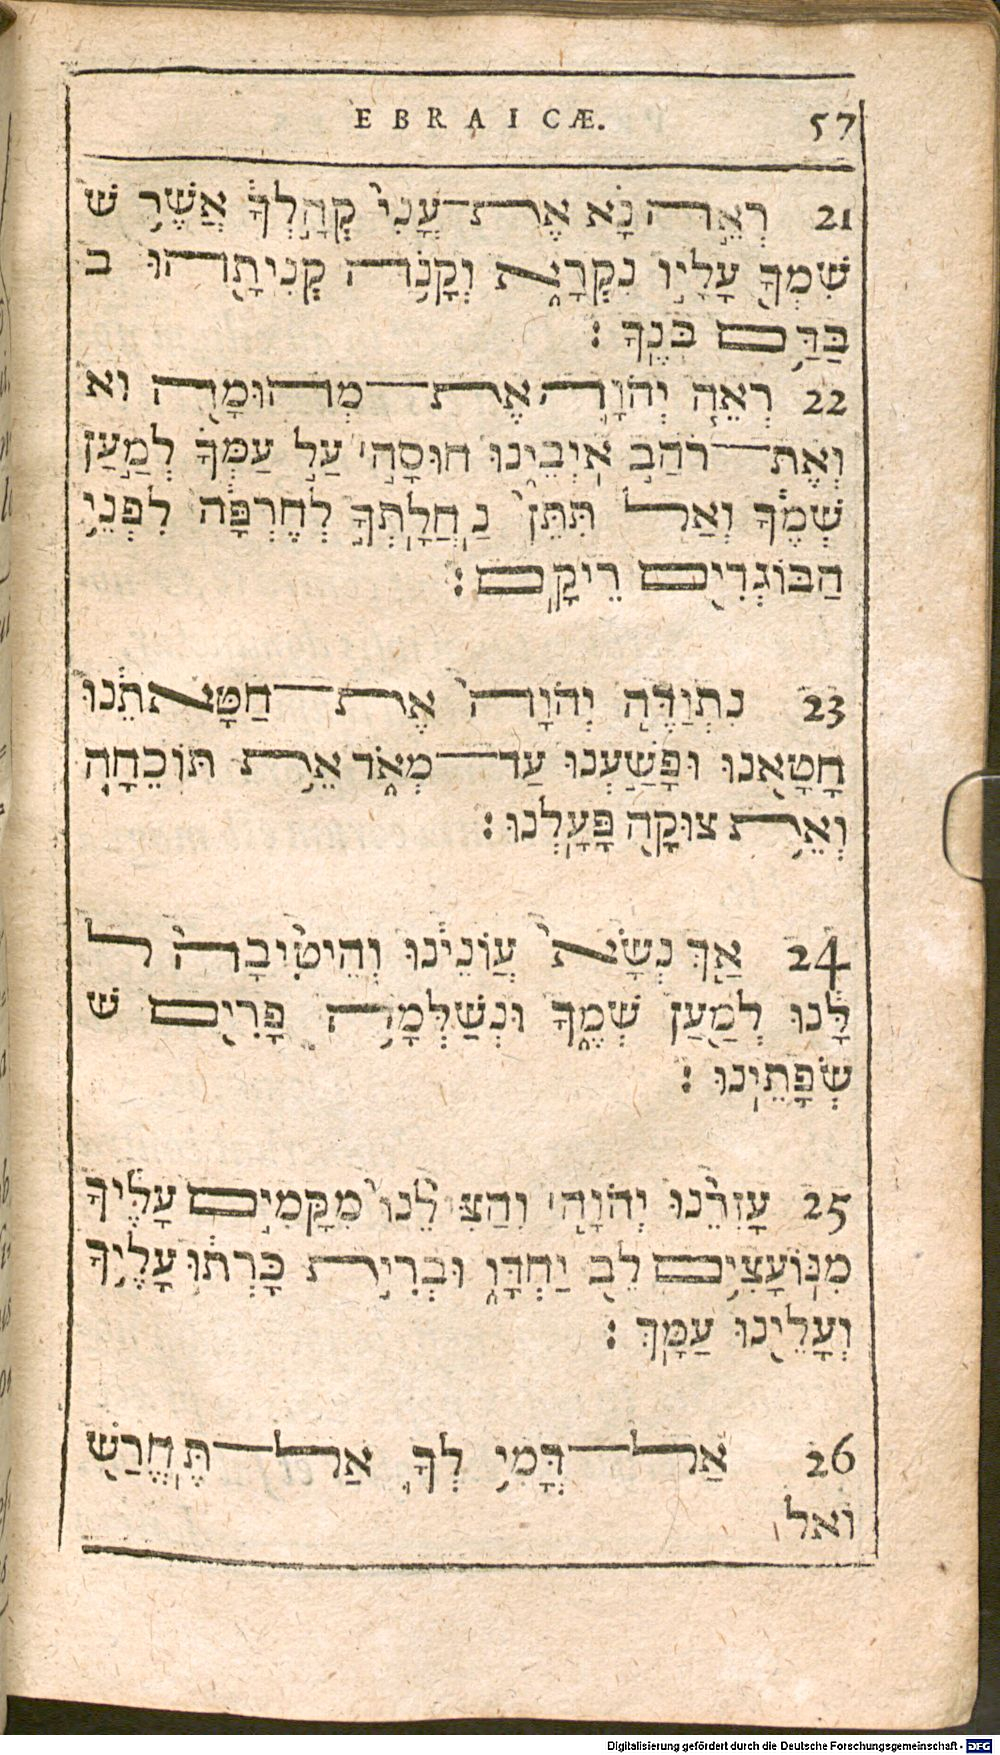 EBRAICÆ. 57
21 רְאֵה נָא אֶת־עֳנִי קְהָלְךָ אֲשֶׁר ש
שִׁמְךָ עָלָיו נִקְרָא וְקָנֹה קְנִיתָהוּ ב
בַּדָּם בִּנְךָ :
22 רְאֵה יְהֹוָה אֶת־מְהוּמָה וא
וְאֶת־רֹהַב אֹיְבֵינוּ חוּסָה עַל עַמְּךָ לְמַעַן
שְׁמֶךָ וְאַל תִּתֵּן נַחֲלָתְךָ לְחֶרְפָּה לִפְנֵי
הַבּוֹגְדִים רֵיקָם :
23 נִתְוַדֶּה יְהֹוָה אֶת־חַטָּאתֵנוּ
חָטָאנוּ וּפָשַׁעְנוּ עַד־מְאֹד אֵת תּוֹכֵחָה
וְאֵת צוּקָה פָּעָלְנוּ :
24 אַךְ נְשָׂא עֲוֹנֵינוּ וְהֵיטִיבָה ל
לָּנוּ לְמַעַן שְׁמֶךָ וּנְשַׁלְּמָה פָּרִים ש
שְׂפָתֵינוּ :
25 עָזְרֵנוּ יְהֹוָה וְהַצִּילֵנוּ מִקָּמִים עָלֶיךָ
מִנּוֹעָצִים לֵב יַחְדָּו וּבְרִית כָּרְתוּ עָלֶיךָ
וְעָלֵינוּ עַמָּךְ :
26 אַל־דֳּמִי לְךָ אַל־תֶּחֱרַשׁ
ואל
Digitalisierung gefördert durch die Deutsche Forschungsgemeinschaft - DFG